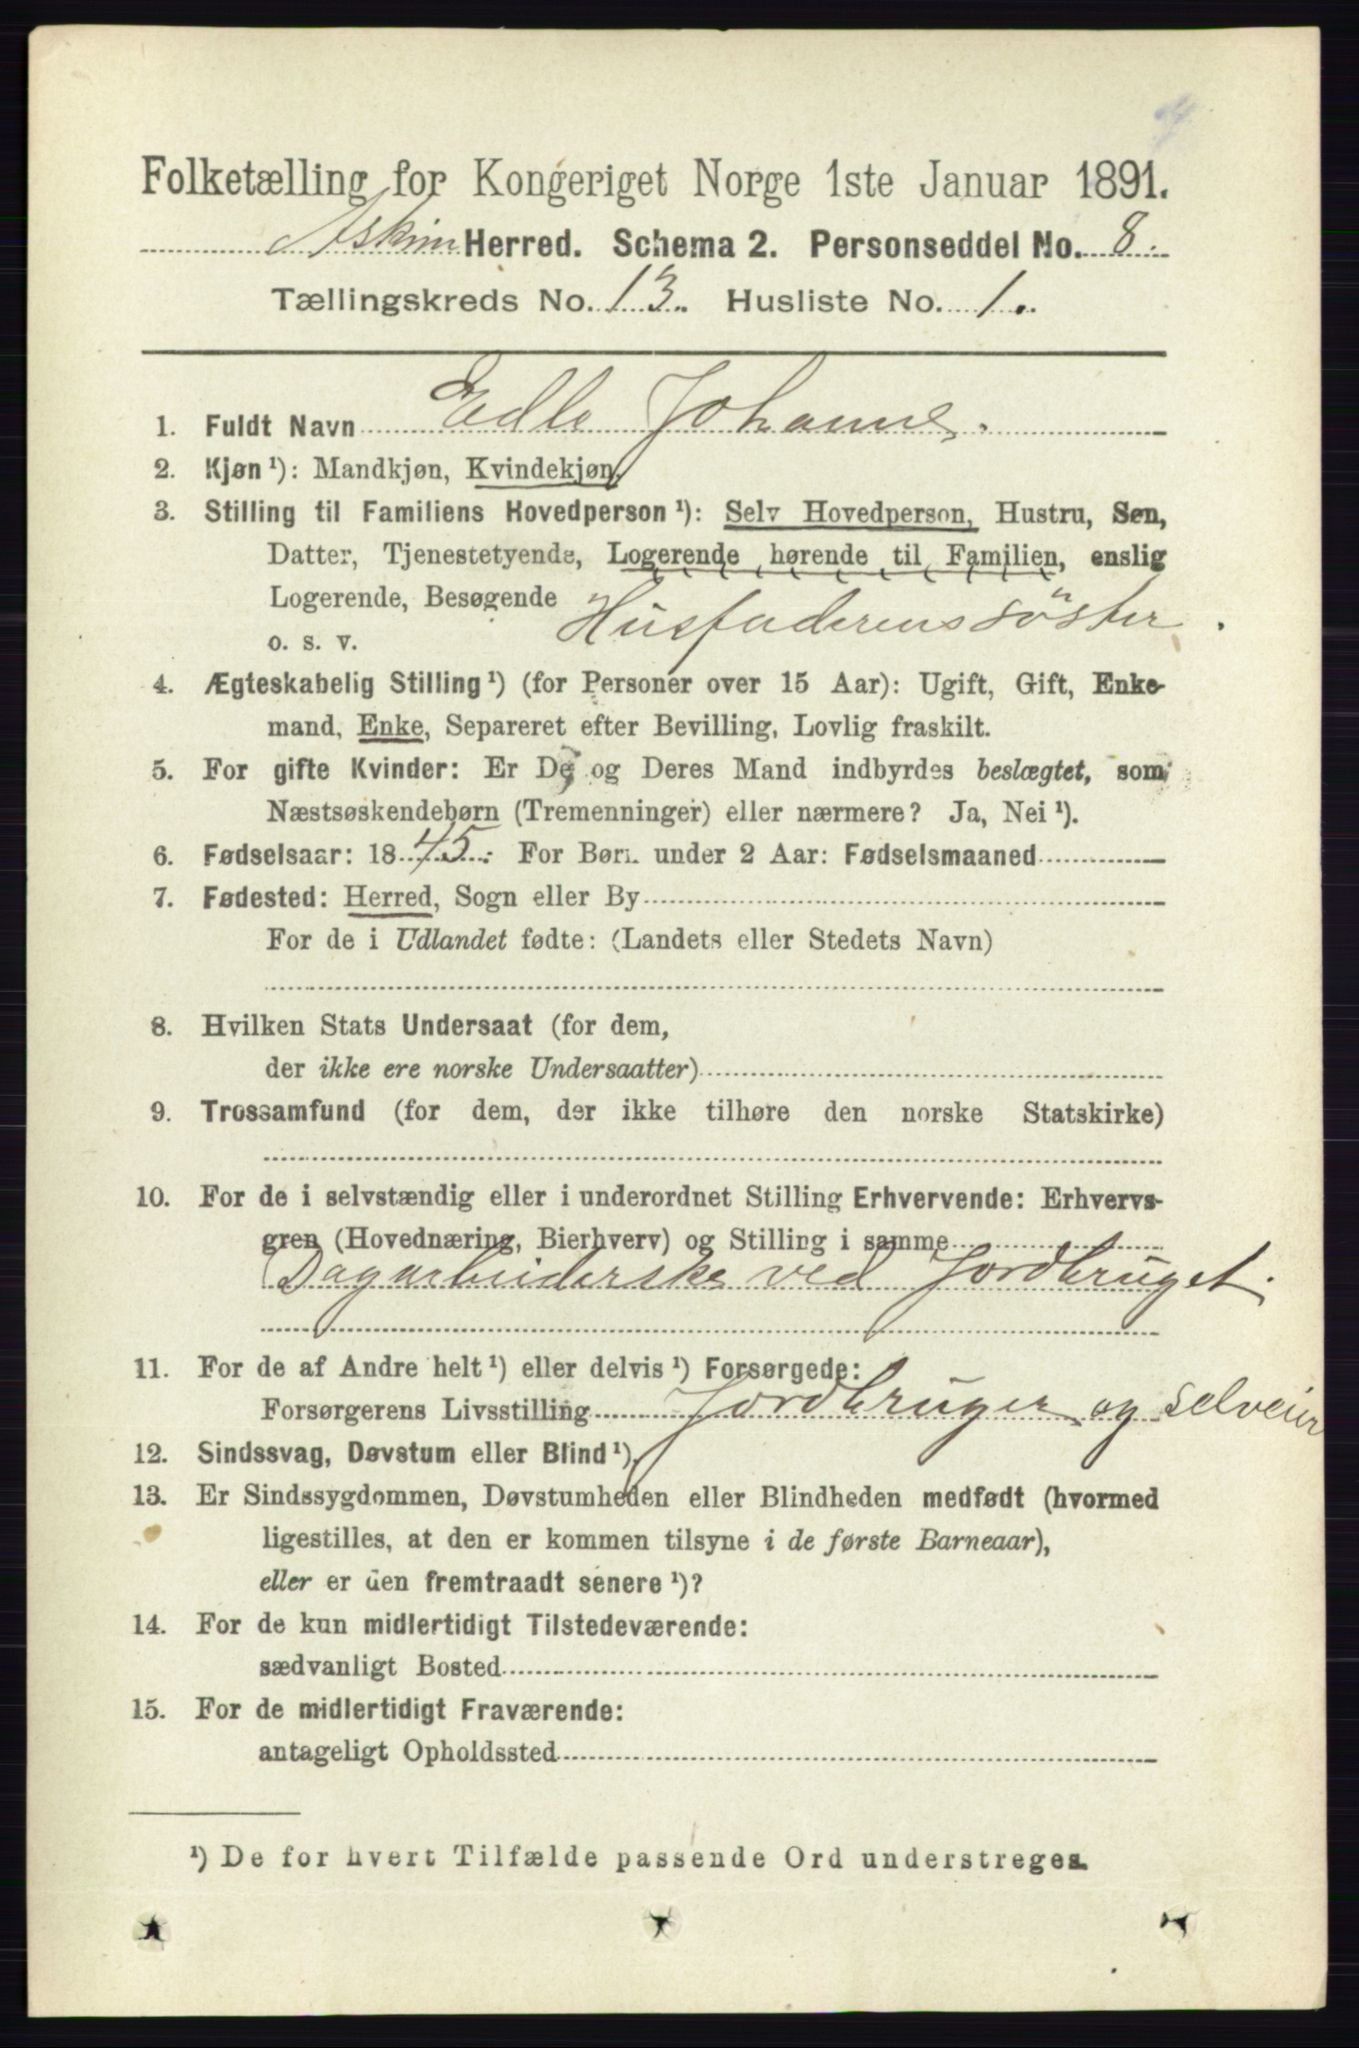 Folketælling for Kongeriget Norge 1ste Januar 1891.
Askim Herred. Schema 2. Personseddel No. 8.
Tællingskreds No. 13. Husliste No. 1.
1. Fuldt Navn Edle Johanne.
2. Kjøn ¹): Mandkjøn, Kvindekjøn.
3. Stilling til Familiens Hovedperson ¹): Selv Hovedperson, Hustru, Søn,
Datter, Tjenestetyende, Logerende hørende til Familien, enslig
Logerende, Besøgende Husfaderens söster.
o. s. v.
4. Ægteskabelig Stilling ¹) (for Personer over 15 Aar): Ugift, Gift, Enke-
mand, Enke, Separeret efter Bevilling, Lovlig fraskilt.
5. For gifte Kvinder: Er De og Deres Mand indbyrdes beslægtet, som
Næstsøskendebørn (Tremenninger) eller nærmere? Ja, Nei ¹).
6. Fødselsaar: 1845. For Børn under 2 Aar: Fødselsmaaned
7. Fødested: Herred, Sogn eller By
For de i Udlandet fødte: (Landets eller Stedets Navn)
8. Hvilken Stats Undersaat (for dem,
der ikke ere norske Undersaatter)
9. Trossamfund (for dem, der ikke tilhøre den norske Statskirke)
10. For de i selvstændig eller i underordnet Stilling Erhvervende: Erhvervs-
gren (Hovednæring, Bierhverv) og Stilling i samme
Dagarbeiderske ved Jordbruget.
11. For de af Andre helt ¹) eller delvis ¹) Forsørgede:
Forsørgerens Livsstilling Jordbruger og selveier
12. Sindssvag, Døvstum eller Blind ¹).
13. Er Sindssygdommen, Døvstumheden eller Blindheden medfødt (hvormed
ligestilles, at den er kommen tilsyne i de første Barneaar),
eller er den fremtraadt senere ¹)?
14. For de kun midlertidigt Tilstedeværende:
sædvanligt Bosted
15. For de midlertidigt Fraværende:
antageligt Opholdssted
¹) De for hvert Tilfælde passende Ord understreges.